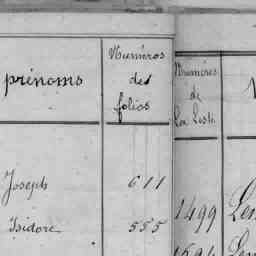 prénoms
Numéros
des
folios
Numéros
de
La Liste
Joseph 611
Isidore 555
1499